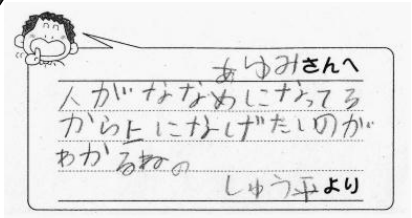 あゆみさんへ
人がななめになってる
から上になげたいのが
わかるね。
しゅう平より